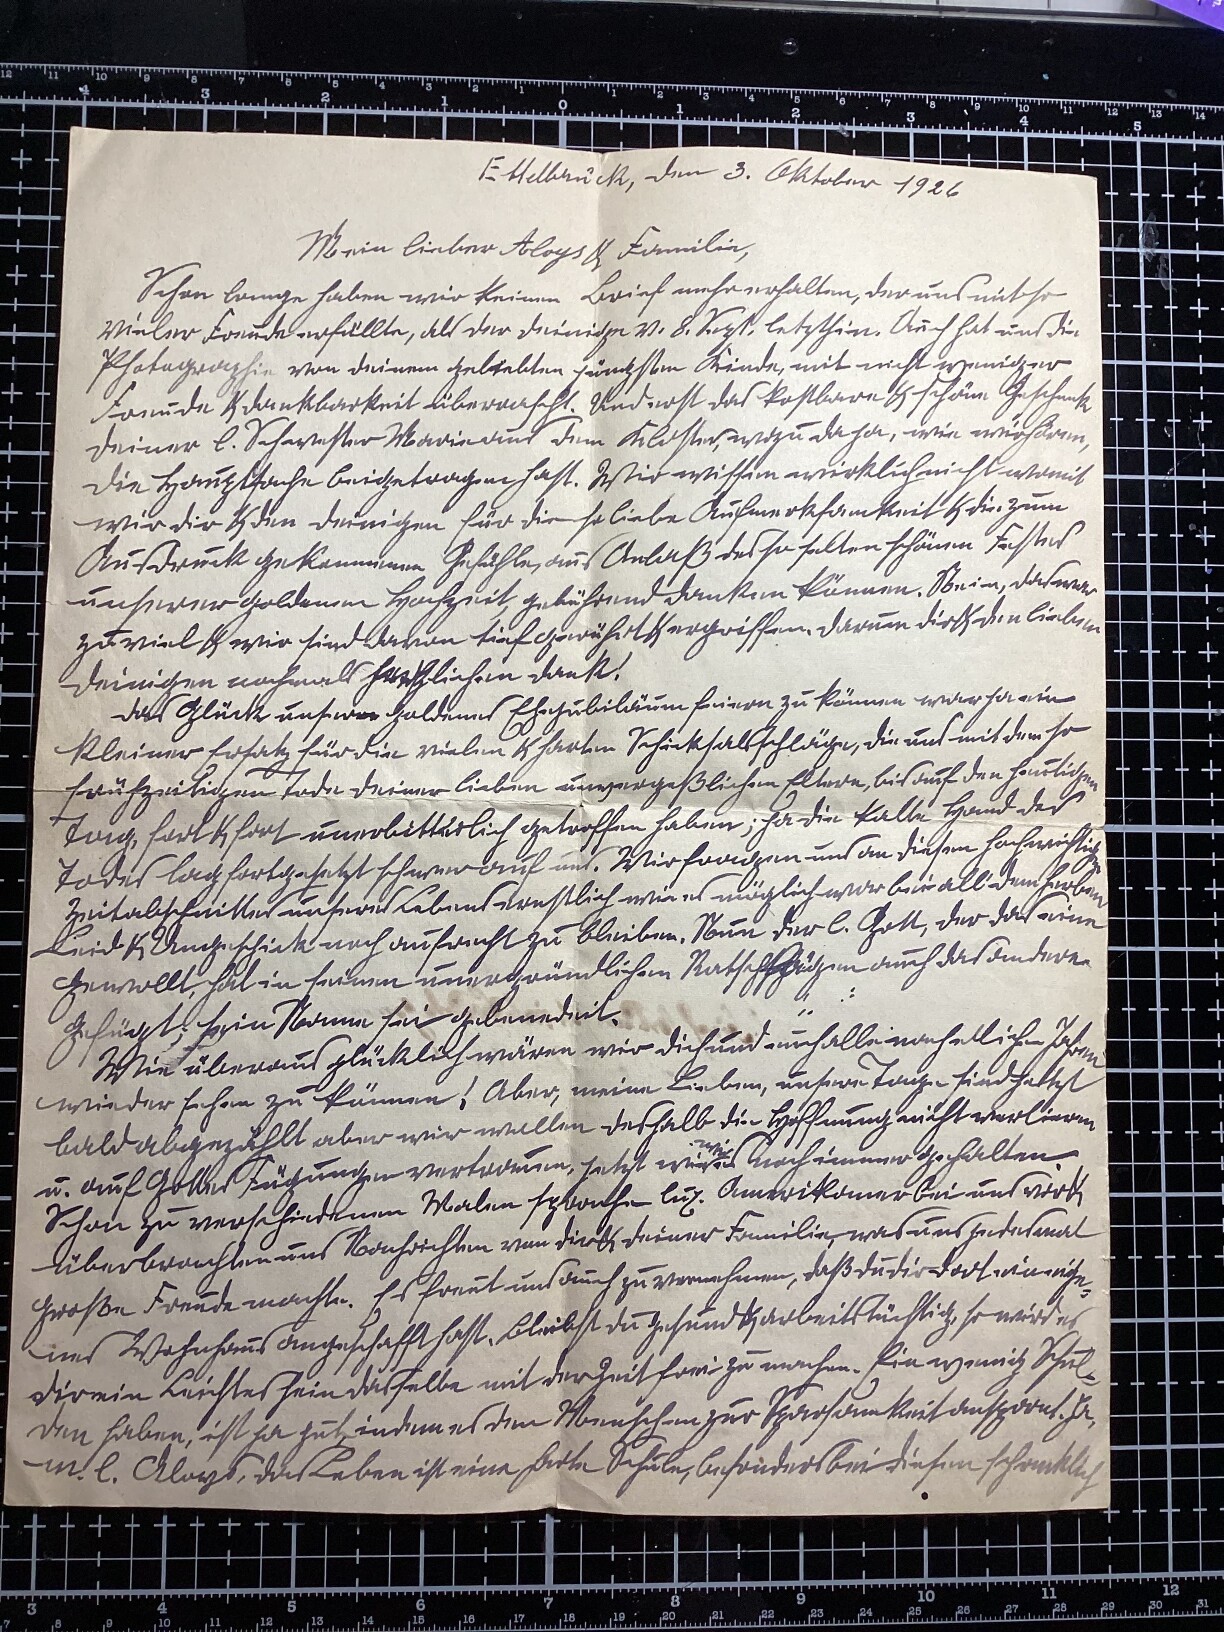 Ettelbrück, den 3. Oktober 1926
Mein lieber Aloys & Familie,
Schon lange haben wir keinen Brief mehr erhalten, der uns mit so
vieler Freude erfüllte, als der deinige v. 8. Sept. letzthin. Auch hat uns die
Photographie von deinem geliebten jüngsten Kinde, mit nicht weniger
Freude & dankbarkeit überrascht. Und erst das kostbare & schöne Geschenk
deiner l. Schwester Marie aus dem Kloster, wozu du ja, wie wir hören,
die Hauptsache beigetragen hast. Wir wissen wirklich nicht womit
wir dir & den deinigen für die so liebe Aufmerksamkeit & die zum
Ausdruck gekommenen Gefühle, aus Anlaß des so selten schönen Festes
unserer goldenen Hochzeit, gebührend danken können. Nein, das war
zu viel & wir sind davon tief gerührt & ergriffen. darum dir & den lieben
deinigen nochmals herzlichen dank!
das Glück unser goldenes Ehejubiläum feiern zu können war ja ein
kleiner Ersatz für die vielen & harten Schicksalsschläge, die uns mit dem so
frühzeitigen Tode deiner lieben unvergeßlichen Eltern, bis auf den heutigen
Tag, fort & fort unerbitterlich getroffen haben; ja die kalte Hand des
Todes lag fortgesetzt schwer auf uns. Wir fragen uns an diesem hochwichtigen
Zeitabschnitte unseres Lebens ernstlich wie es möglich war bei all' dem herben
Leid & Ungeschick noch aufrecht zu bleiben. Nun der l. Gott, der das eine
gewollt, hat in seinen unergründlichen Ratschlägen auch das andere
gefügt; sein Name sei gebenedeit.
Wie überaus glücklich wären wir dich und euch alle nach etlichen Jahren
wieder sehen zu können! Aber, meine Lieben, unsere Tage sind jetzt
bald abgezählt aber wir wollen deshalb die Hoffnung nicht verlieren
u. auf Gottes Fügungen vertrauen, jetzt wie wir's noch immer gehalten.
Schon zu verschiedenen Malen sprachen lux. Amerikaner bei uns vor &
überbrachten uns Nachrichten von dir & deiner Familie, was uns jedesmal
große Freude machte. Es freut uns auch zu vernehmen, daß du dir dort ein eige-
nes Wohnhaus angeschafft hast. bleibst du gesund & arbeitstüchtig, so wird es
dir ein Leichtes sein dasselbe mit der Zeit frei zu machen. Ein wenig Schul-
den haben, ist ja gut, indem es den Menschen zur Sparsamkeit anspornt. Ja,
m. l. Aloys, das Leben ist eine harte Schule, besonders bei diesen schrecklich